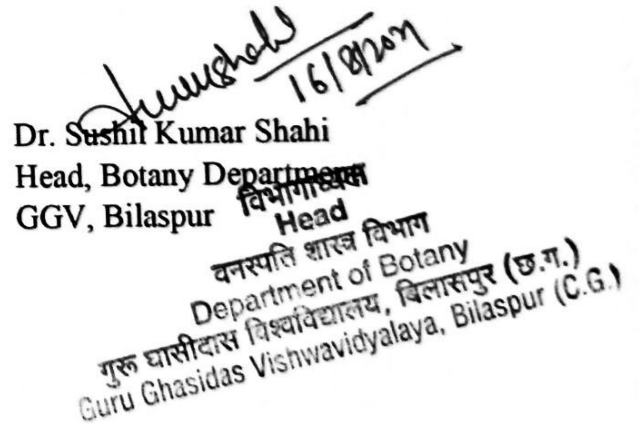 16/8/2021
Dr. Sushil Kumar Shahi
Head, Botany Department
GGV, Bilaspur
विभागाध्यक्ष
Head
वनस्पति शास्त्र विभाग
Department of Botany
गुरू घासीदास विश्वविद्यालय, बिलासपुर (छ.ग.)
Guru Ghasidas Vishwavidyalaya, Bilaspur (C.G.)